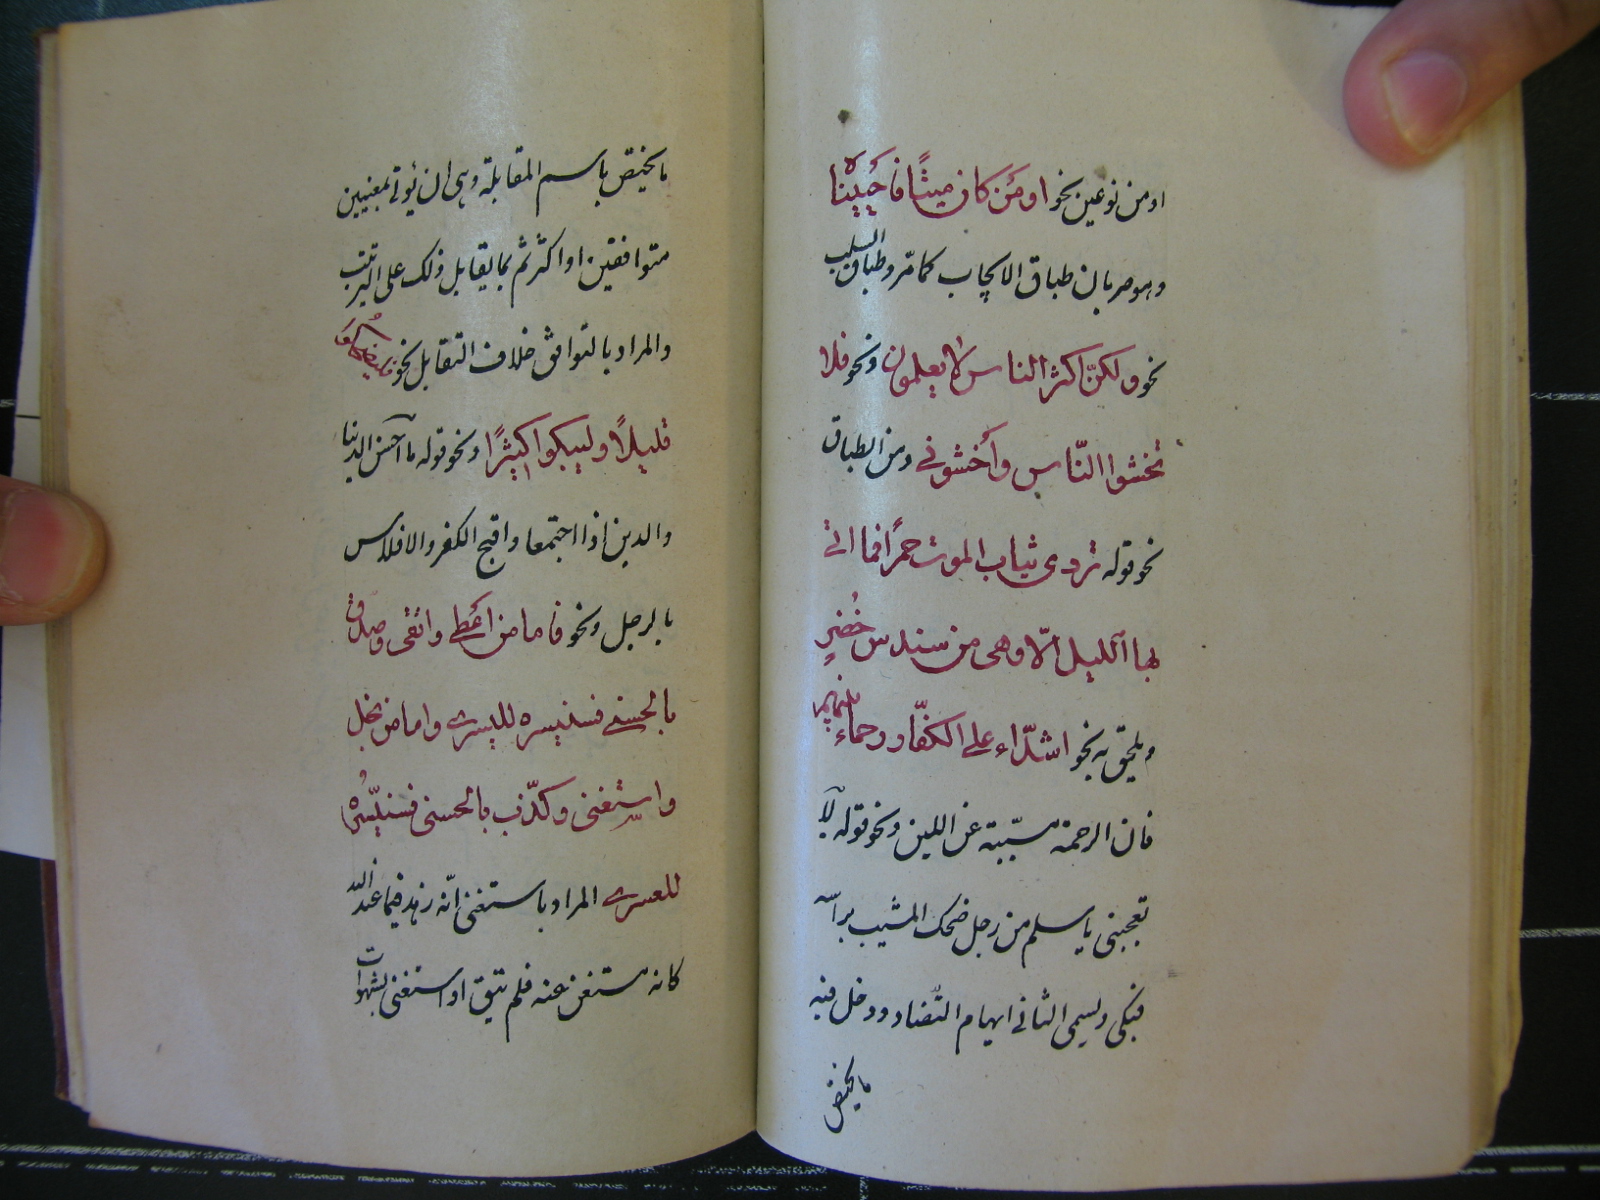 او من نوعین نحو او مَن کان میتًا فاحییناه
وهو ضربان طباق الایجاب کما مر و طباق السلب
نحو ولکنّ اکثر الناس لا یعلمون ونحو فلا
تخشوا النّاس واخشونی ومن الطباق
نحو قوله تردی ثیاب الموت حمرًا فما اتی
لها اللیل الّا وهی من سندس خُضرٍ
ویلحق به نحو اشدّاء علی الکفّار رحماء بینهم
فان الرحمة مسبّبة عن اللین ونحو قوله لا
تعجبنی یا سلم من رجل ضحک المشیب براسه
فبکی ویسمی الثانی ایهام التضاد ودخل فیه
ما یختص
ما یختص باسم المقابلة وهی ان یؤتی بمعنیین
متوافقین او اکثر ثم بما یقابل ذلک علی الترتیب
والمراد بالتوافق خلاف التقابل نحو فلیضحکوا
قلیلًا ولیبکوا کثیرًا ونحو قوله ما احسن الدنیا
والدین اذا اجتمعا واقبح الکفر والافلاس
بالرجل ونحو فاما من اعطی واتقی وصدق
بالحسنی فسنیسره للیسری واما من بخل
واستغنی وکذّب بالحسنی فسنیسّرُه
للعسری المراد باستغنی انّه زهد فیما عند الله
کانه مستغن عنه فلم یتق او استغنی بشهوات